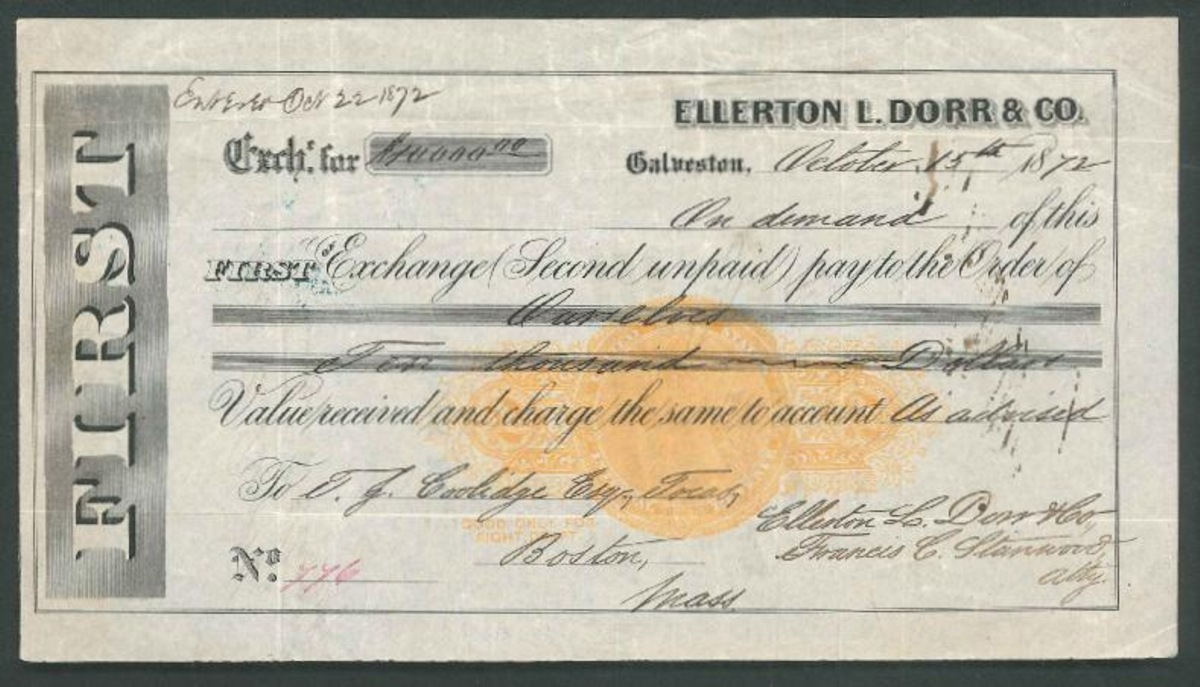 FIRST
Entered Oct 22 1872
ELLERTON L. DORR & CO.
Exch. for $10000.00
Galveston, October 15th 1872
On demand of this
FIRST of Exchange (Second unpaid) pay to the Order of
Ourselves
Ten thousand Dollars
Value received and charge the same to account As advised
To T. J. Coolidge Esq, Treas,
GOOD ONLY FOR
SIGHT DRAFT
Ellerton L. Dorr & Co,
Boston,
Francis C. Stanwood,
atty.
No. 776
Mass